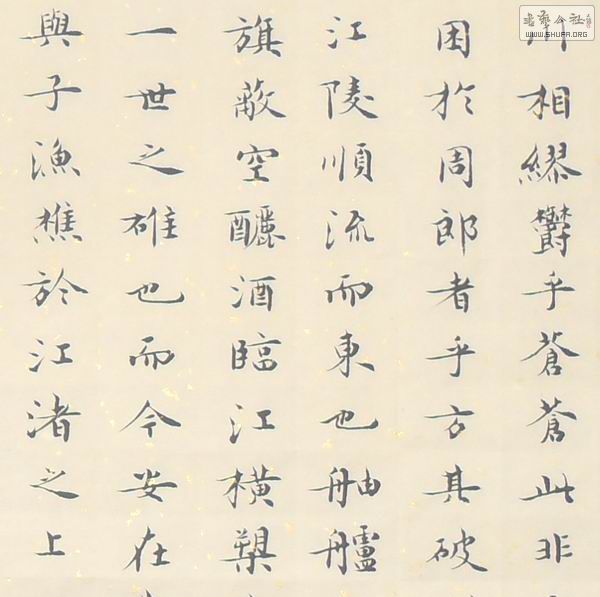 川相繆鬱乎蒼蒼此非
困於周郎者乎方其破
江陵順流而東也舳艫
旗蔽空釃酒臨江橫槊
一世之雄也而今安在
與子漁樵於江渚之上
書藝公社
WWW.SHUFA.ORG